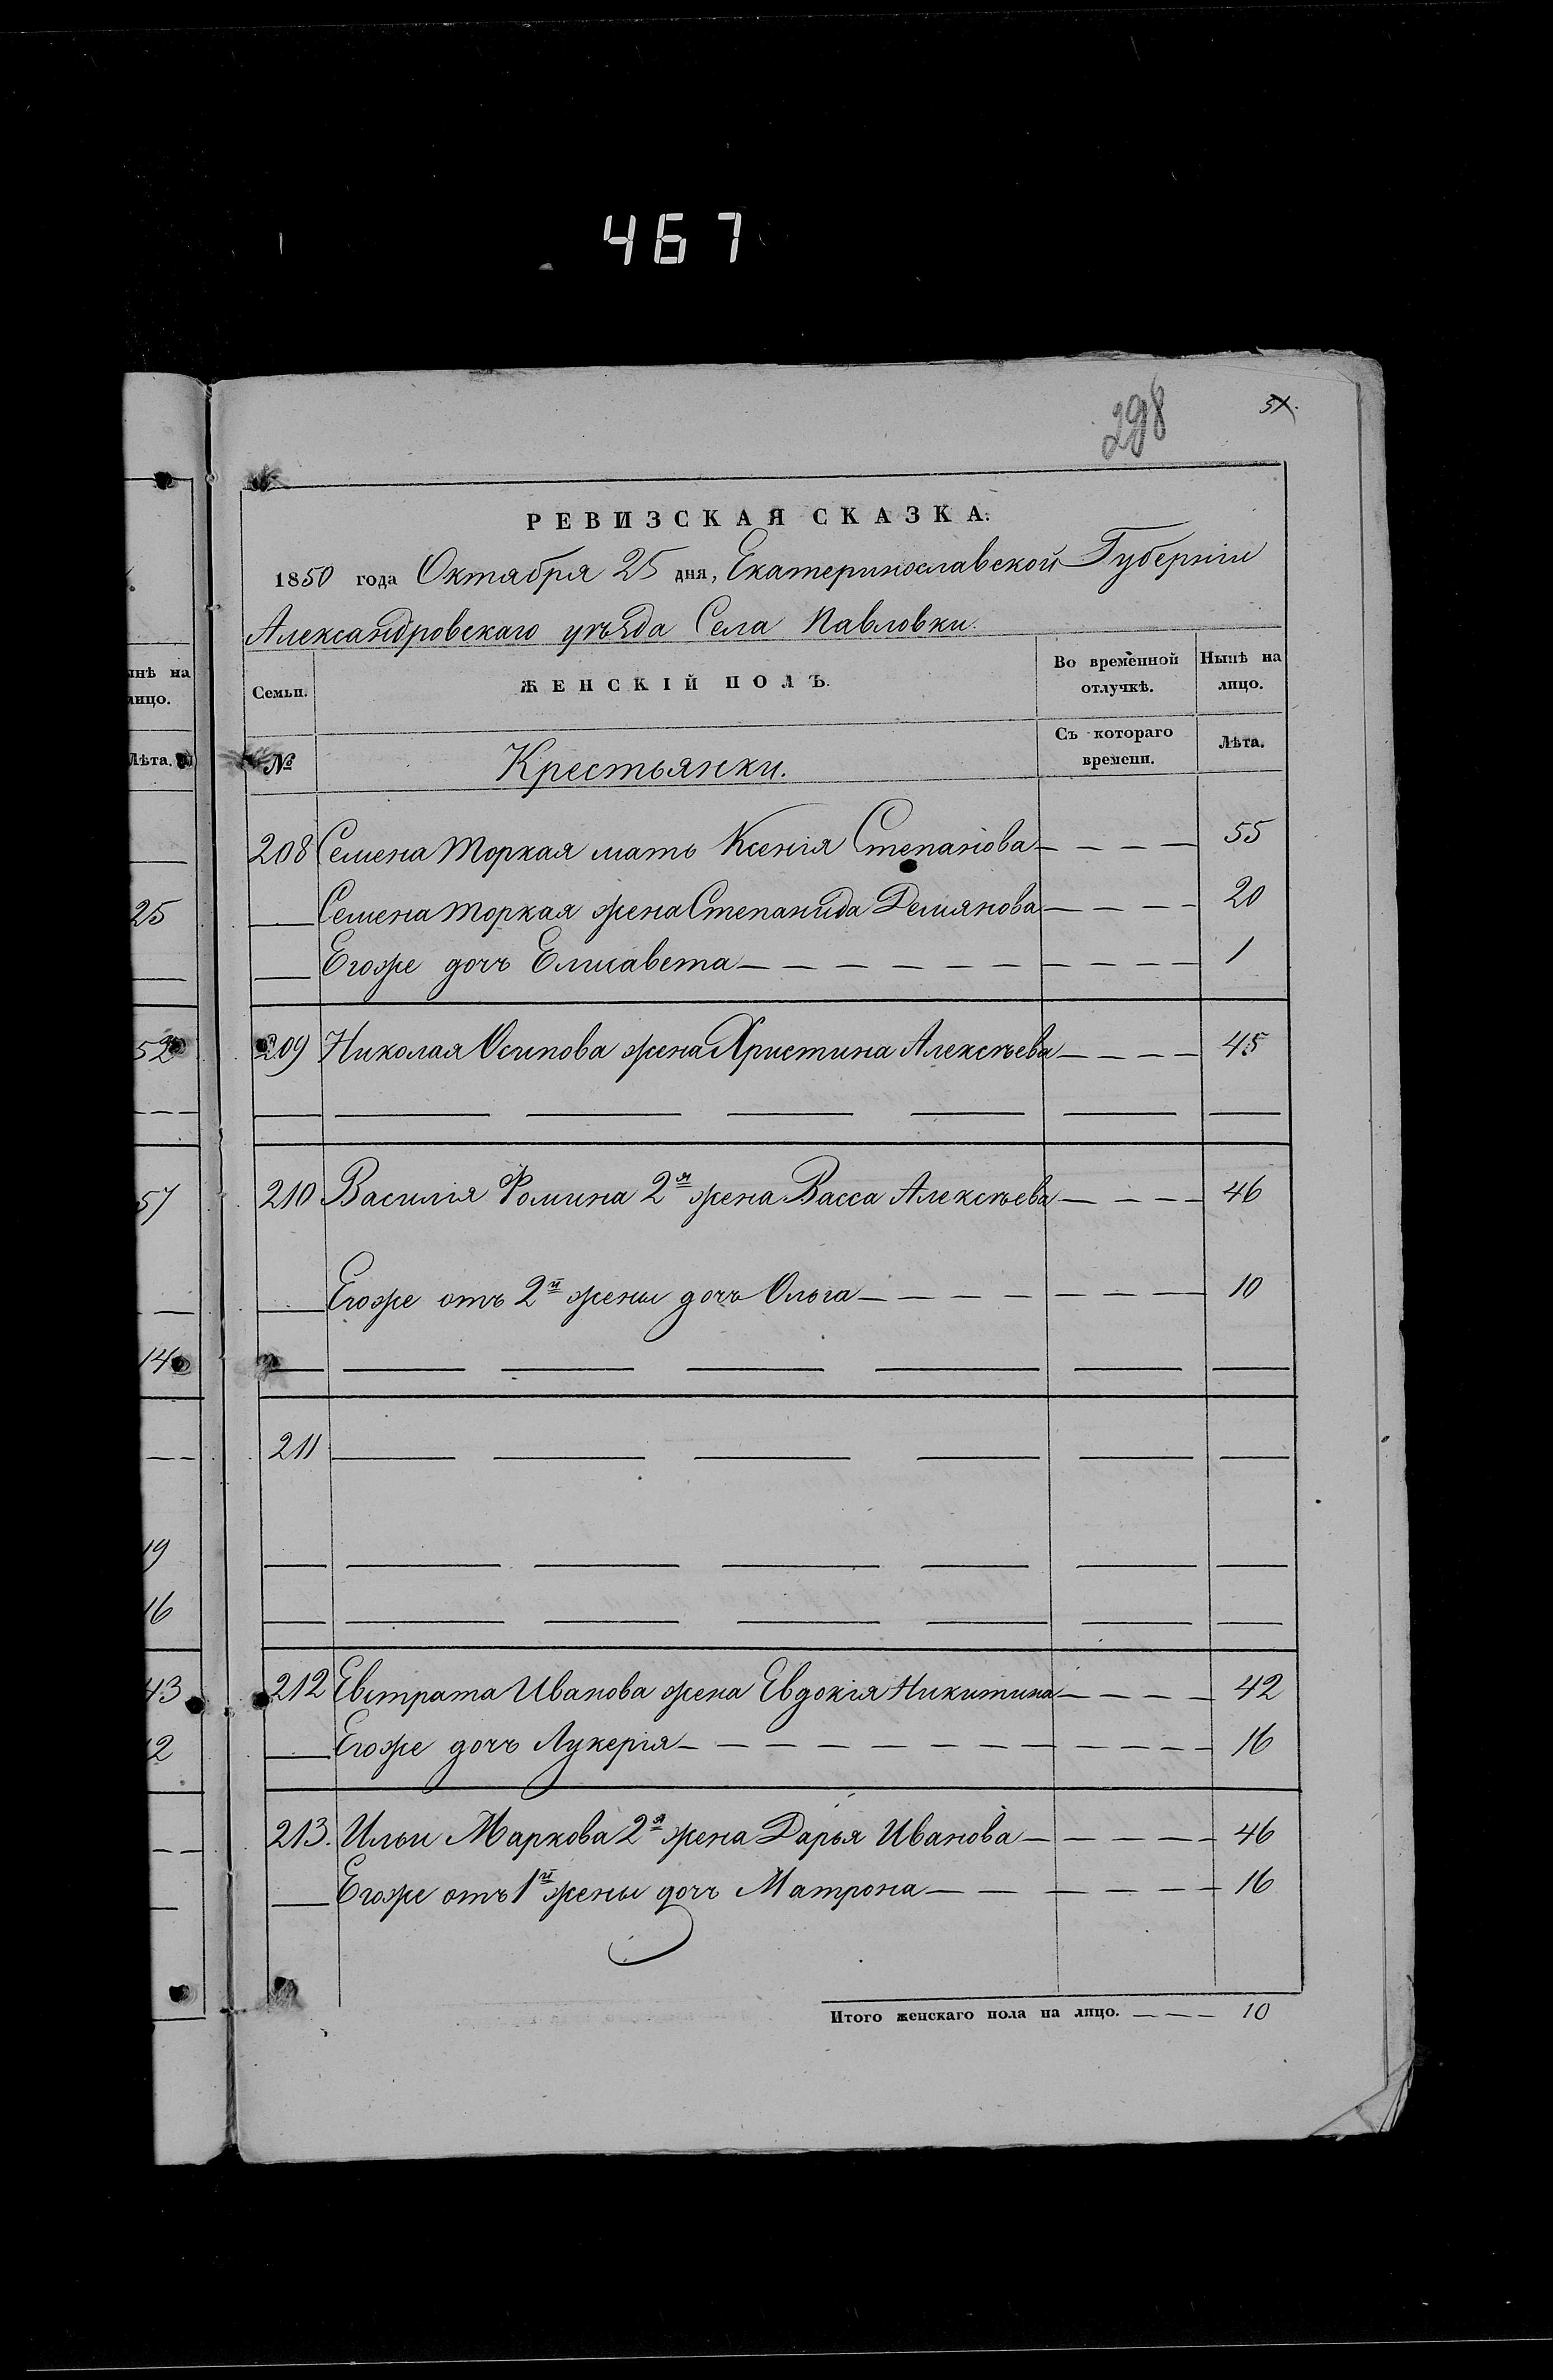 467
298
РЕВИЗСКАЯ СКАЗКА.
1850 года Октября 25 дня, Екатеринославской Губерніи
Александровскаго уѣзда Села Павловки.
Семьи. ЖЕНСКІЙ ПОЛЪ. Во временной отлучкѣ. Нынѣ на лицо.
№ Крестьянки. Съ котораго времени. Лѣта.
208 Семена Торкая мать Ксенія Степанова — — — — 55
— Семена Торкая жена Степанида Демянова — — — — 20
— Егоже дочь Елисавета — — — — — — — — — — 1
209 Николая Осипова жена Христина Алексѣева — — — — 45
210 Василія Фомина 2я жена Васса Алексѣева — — — — 46
— Егоже отъ 2й жены дочь Ольга — — — — — — — — 10
211 — — — — — —
212 Евстрата Иванова жена Евдокія Никитина — — — — 42
— Егоже дочь Лукерія — — — — — — — — — — — 16
213. Ильи Маркова 2я жена Дарья Иванова — — — — — 46
— Егоже отъ 1й жены дочь Матрона — — — — — — — 16
Итого женскаго пола на лицо. — — — 10
ынѣ на
лицо.
Лѣта.
25
52
57
14
19
16
43
12